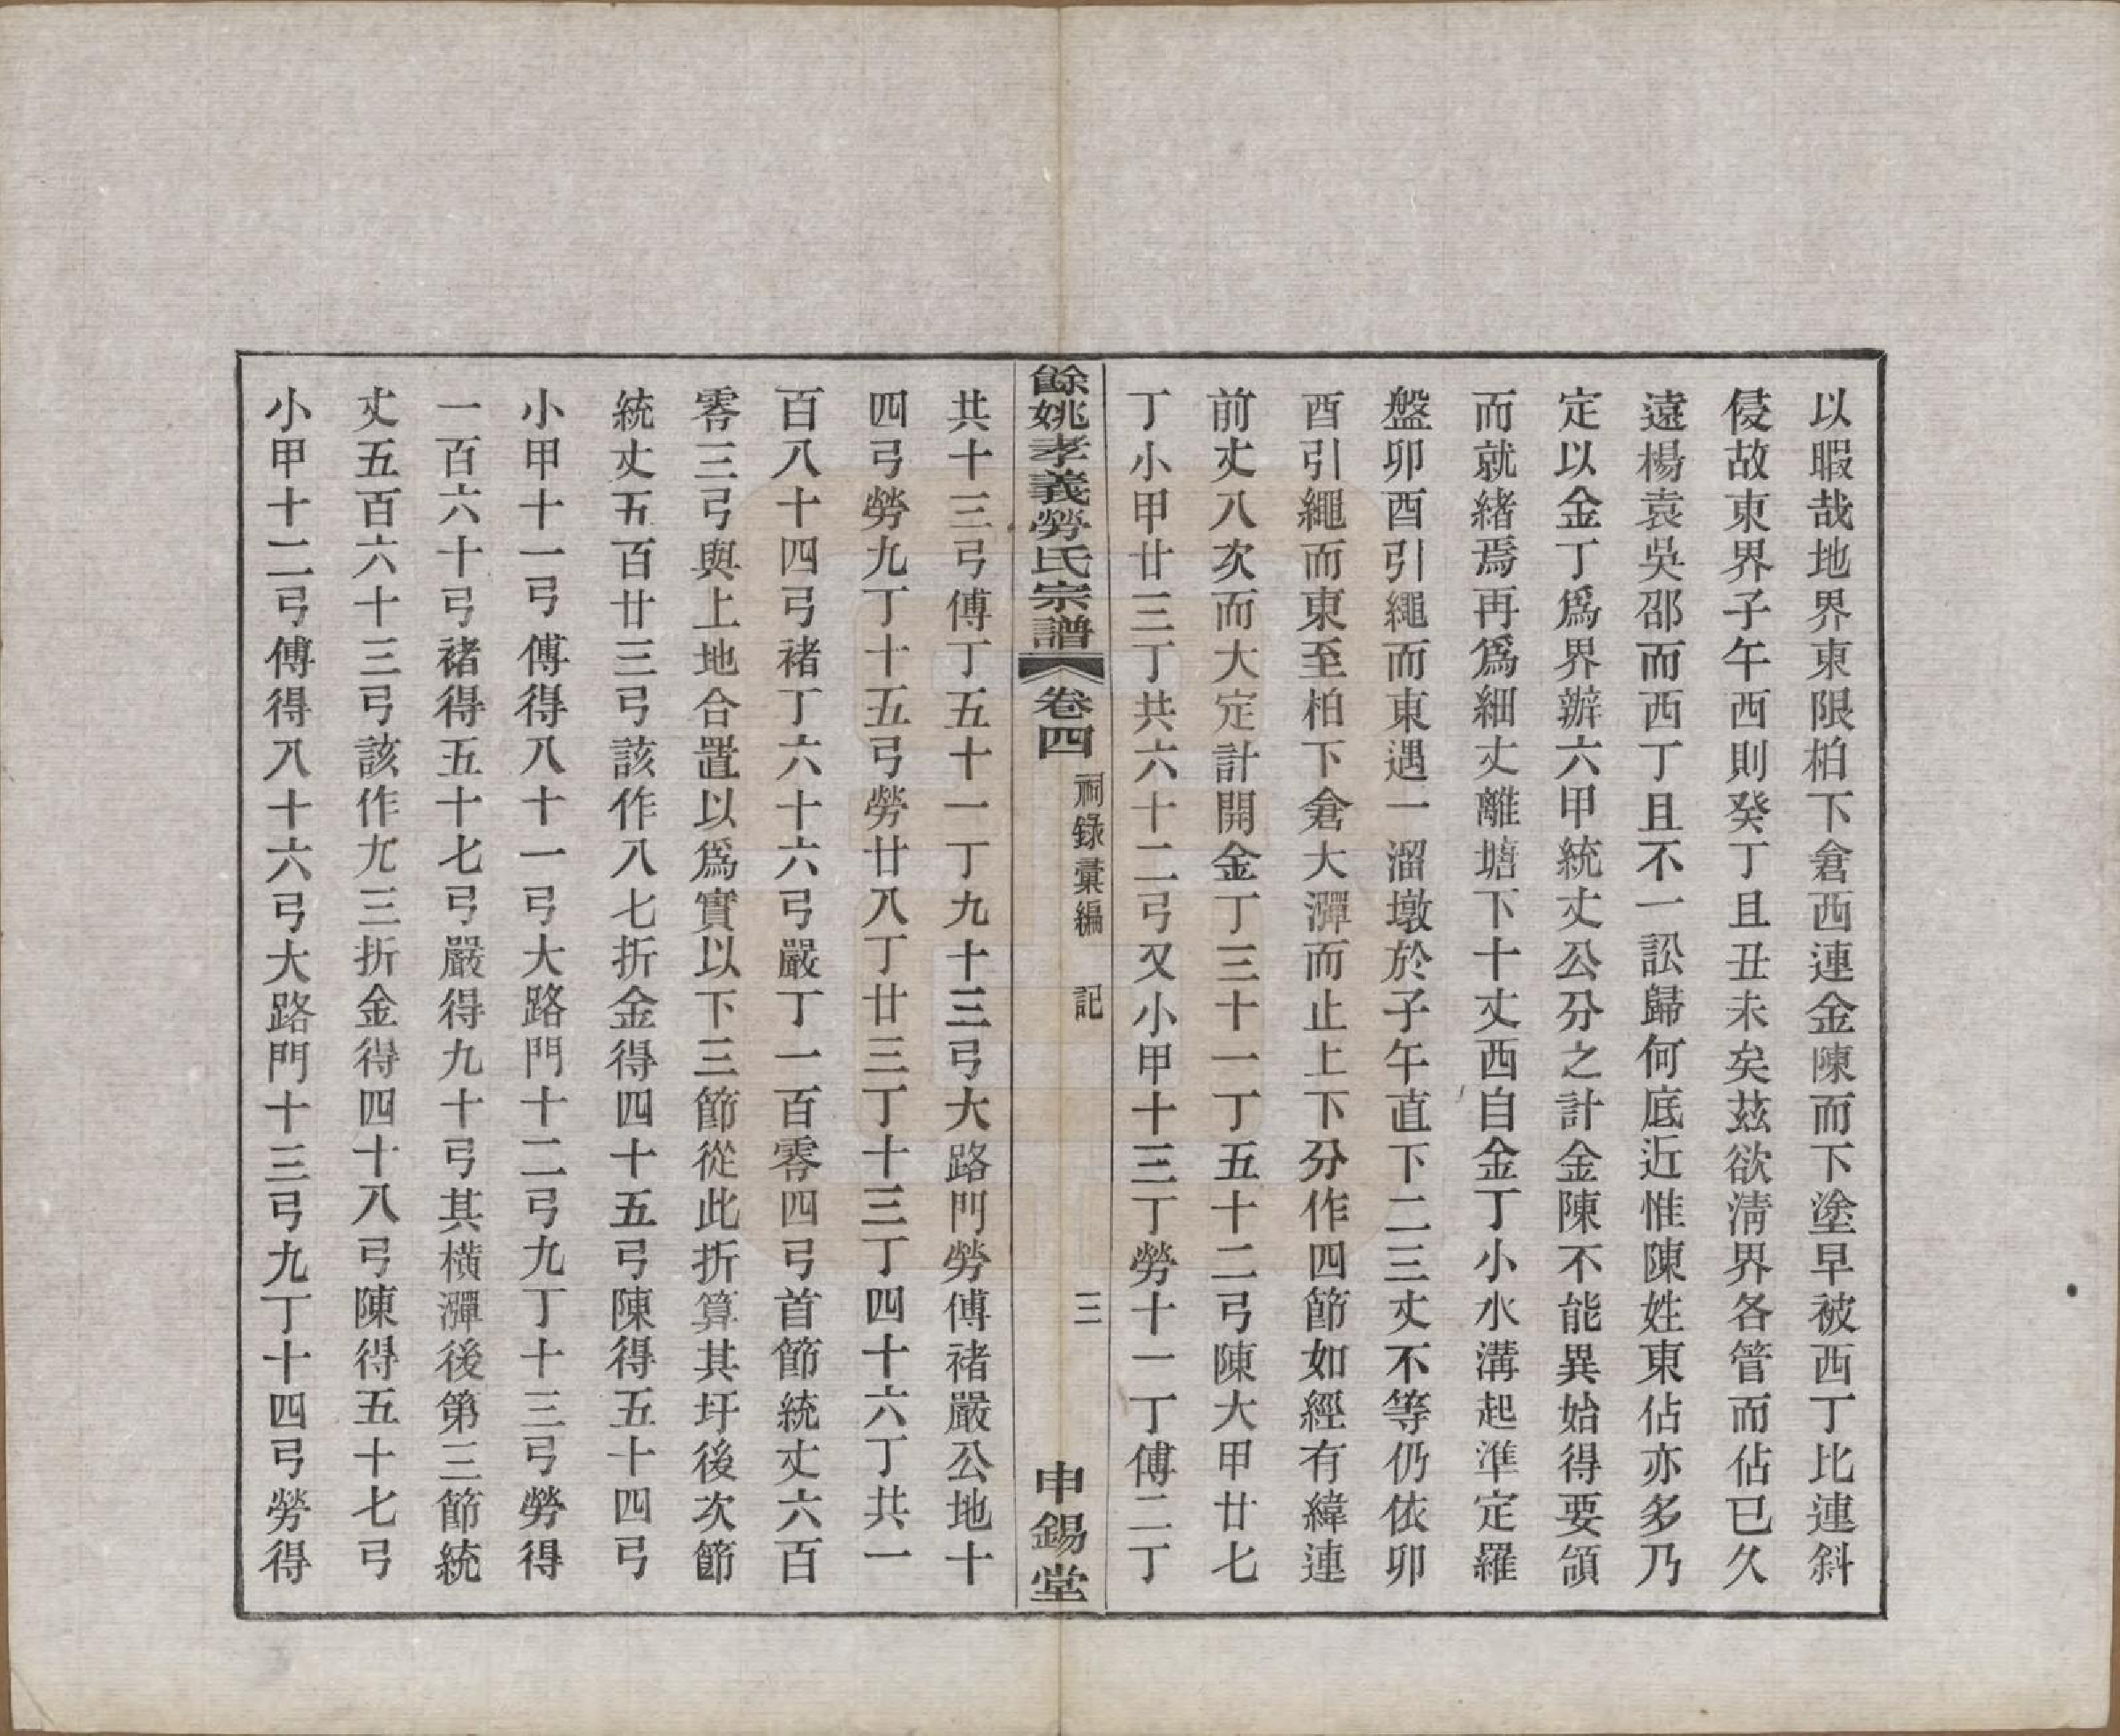 以暇哉地界東限柏下倉西連金陳而下塗早被西丁比連斜
侵故東界子午西則癸丁且丑未矣茲欲清界各管而佔已久
遠楊袁吳邵而西丁且不一訟歸何底近惟陳姓東佔亦多乃
定以金丁爲界辦六甲統丈公分之計金陳不能異始得要頷
而就緒焉再爲細丈離塘下十丈西自金丁小水溝起準定羅
盤卯酉引繩而東遇一溜墩於子午直下二三丈不等仍依卯
酉引繩而東至柏下倉大潬而止上下分作四節如經有緯連
前丈八次而大定計開金丁三十一丁五十二弓陳大甲廿七
丁小甲廿三丁共六十二弓又小甲十三丁勞十一丁傅二丁
餘姚孝義勞氏宗譜 卷四 祠錄彙編 記 三 申錫堂
共十三弓傅丁五十一丁九十三弓大路門勞傅褚嚴公地十
四弓勞九丁十五弓勞廿八丁廿三丁十三丁四十六丁共一
百八十四弓褚丁六十六弓嚴丁一百零四弓首節統丈六百
零三弓與上地合置以爲實以下三節從此折算其圩後次節
統丈五百廿三弓該作八七折金得四十五弓陳得五十四弓
小甲十一弓傅得八十一弓大路門十二弓九丁十三弓勞得
一百六十弓褚得五十七弓嚴得九十弓其橫潬後第三節統
丈五百六十三弓該作九三折金得四十八弓陳得五十七弓
小甲十二弓傅得八十六弓大路門十三弓九丁十四弓勞得